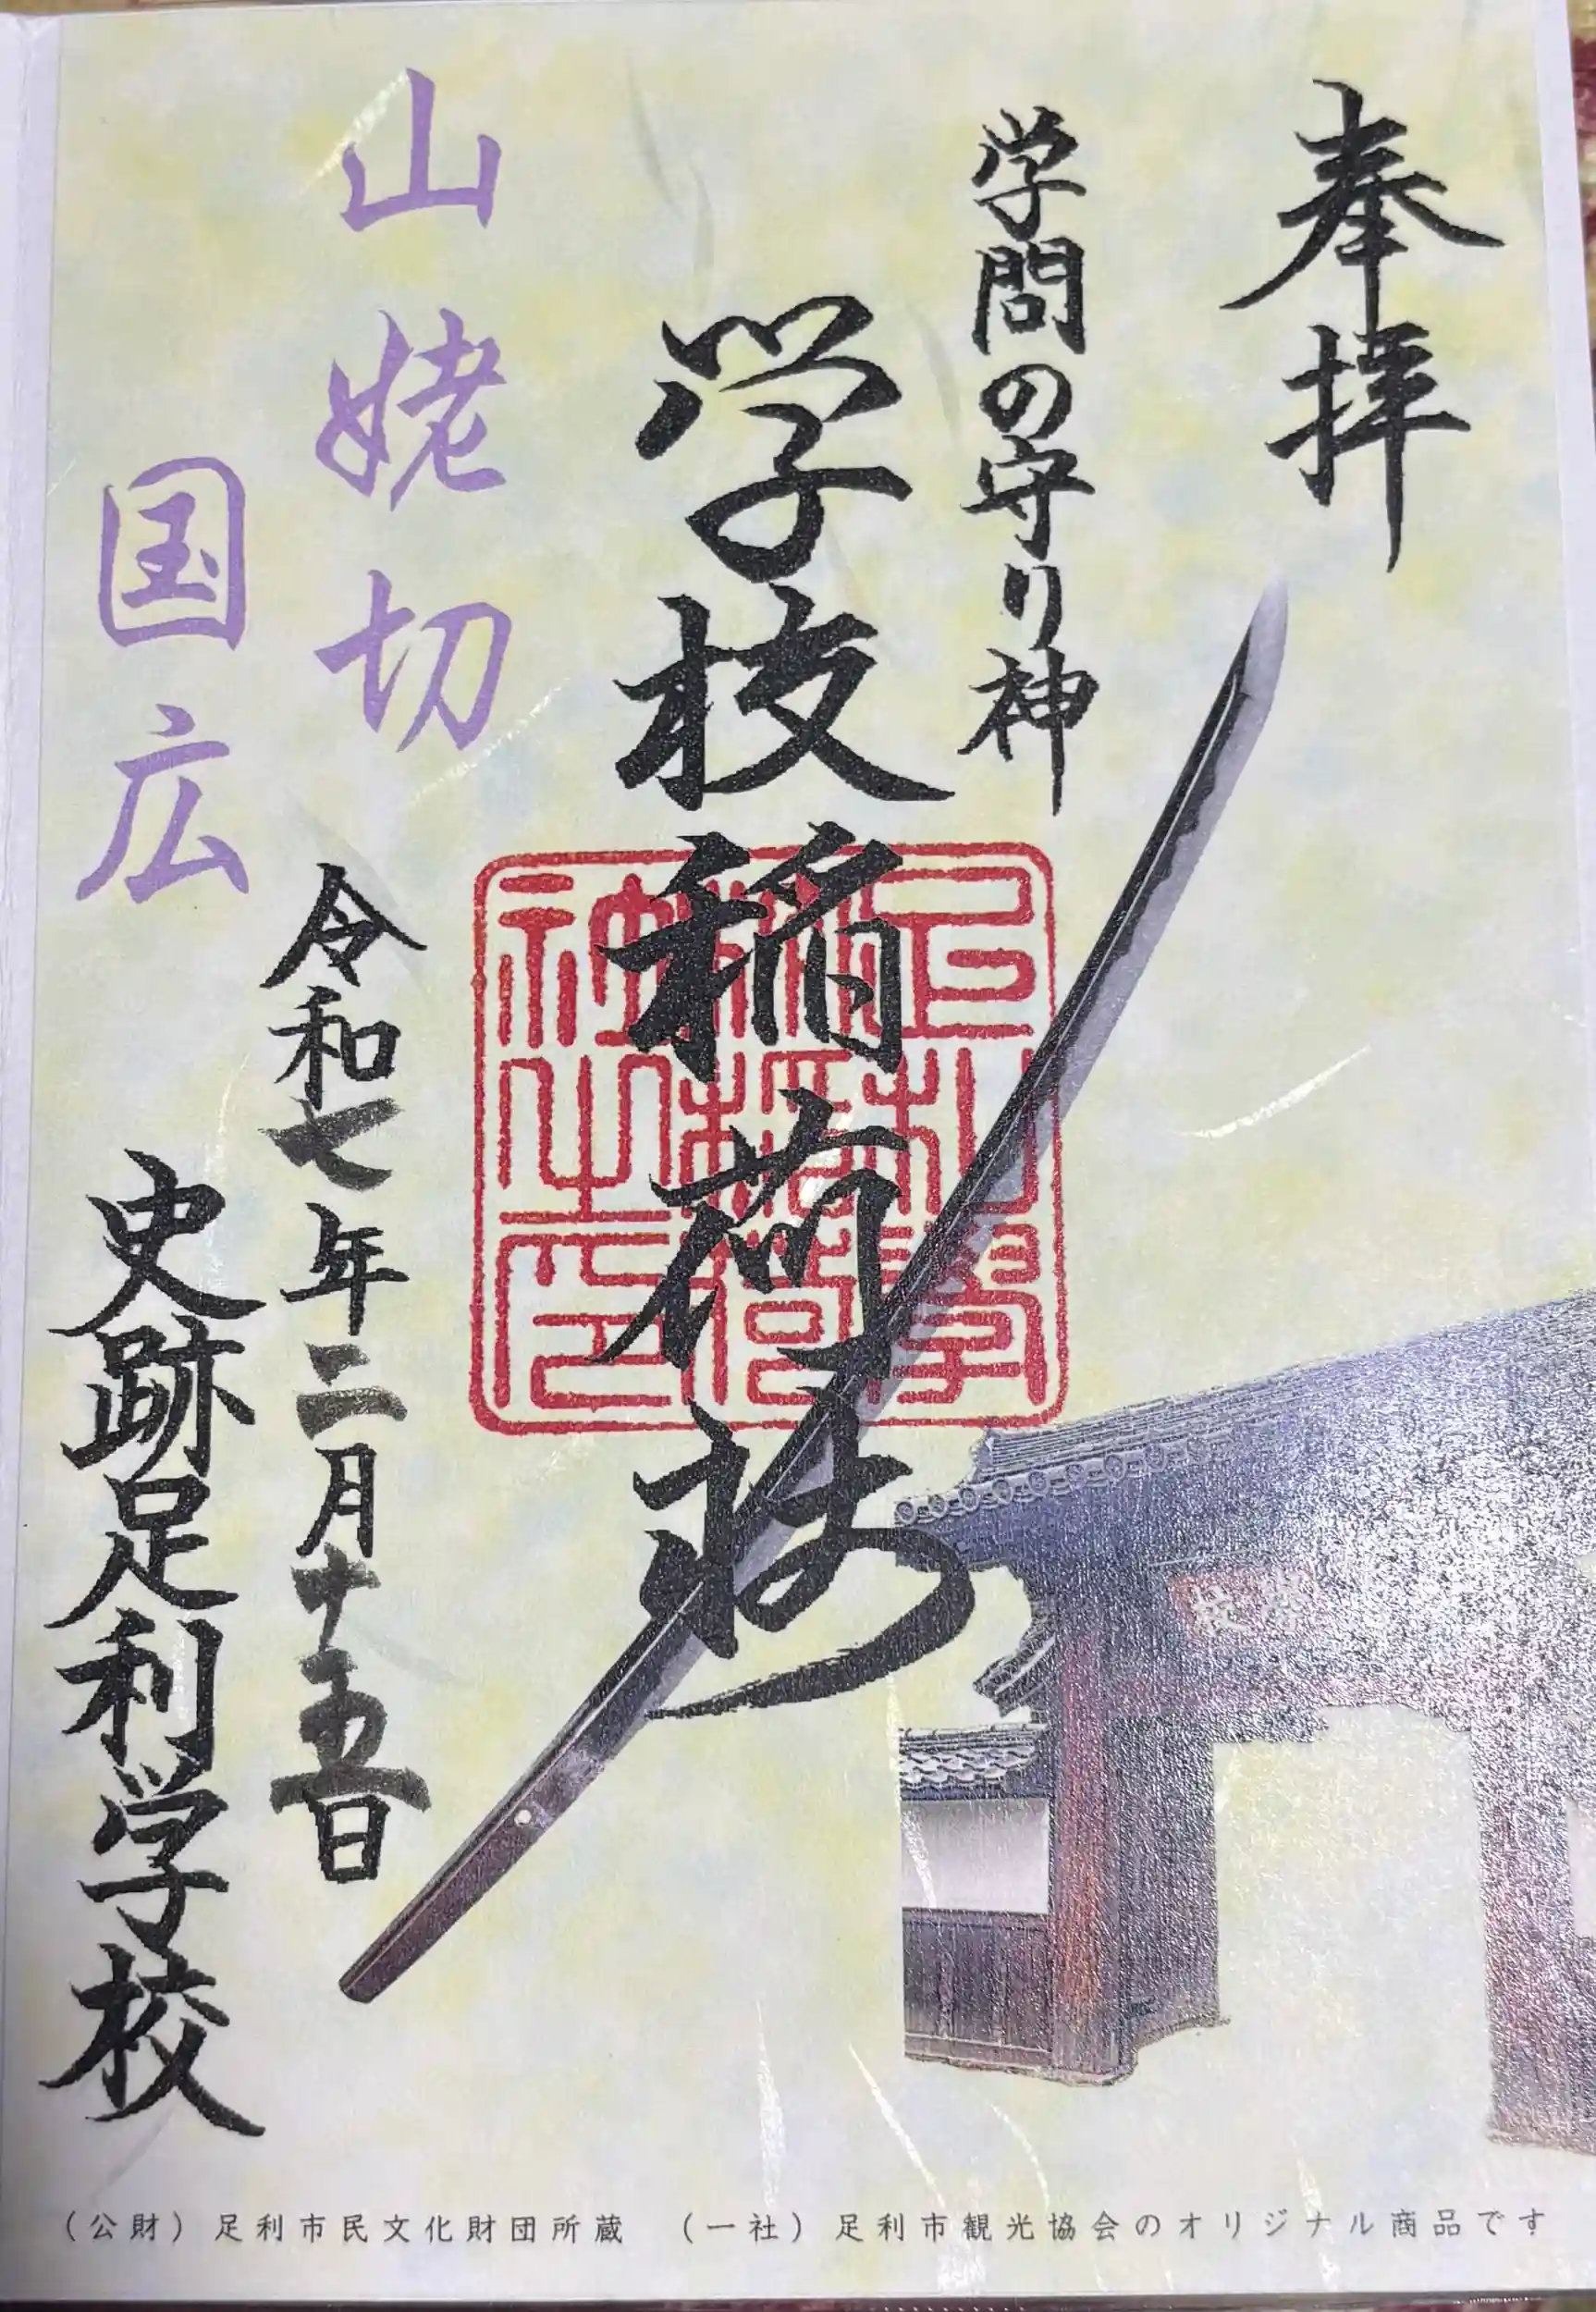 奉拝
学問の守り神
学校稲荷社
山姥切
国広
令和七年二月十五日
史跡足利学校
學校
(公財)足利市民文化財団所蔵 (一社)足利市観光協会のオリジナル商品です